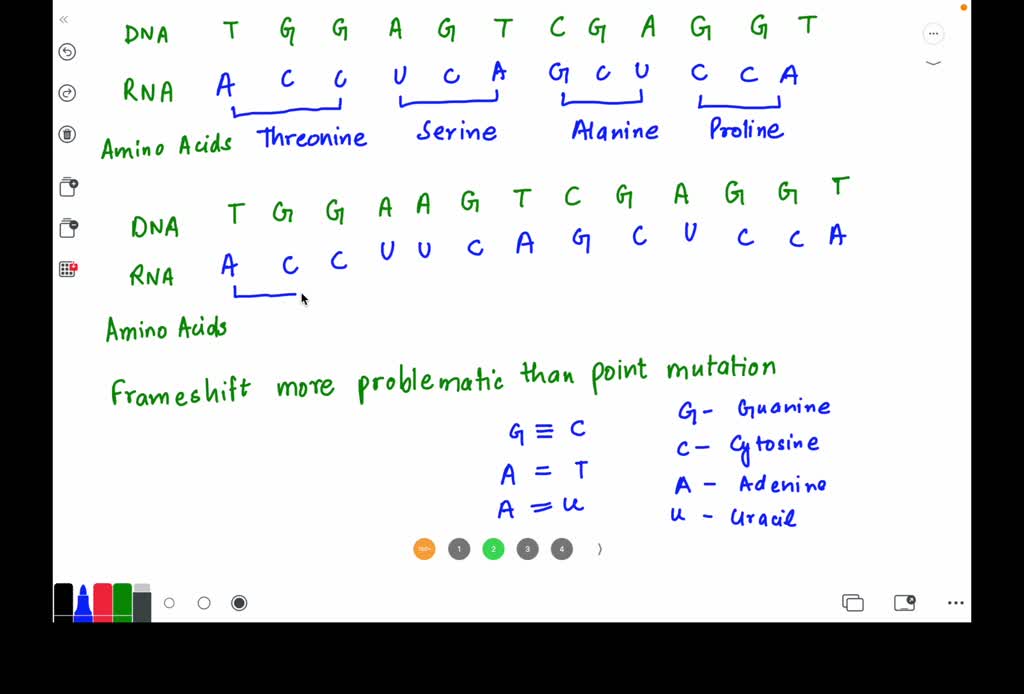 DNA T G G A G T C G A G G T
RNA A C C U C A G C U C C A
Amino Acids Threonine Serine Alanine Proline
DNA T G G A A G T C G A G G T
RNA A C C U U C A G C U C C A
Amino Acids
Frameshift more problematic than point mutation
G ≡ C
A = T
A = U
G - Guanine
C - Cytosine
A - Adenine
U - Uracil
1 2 3 4